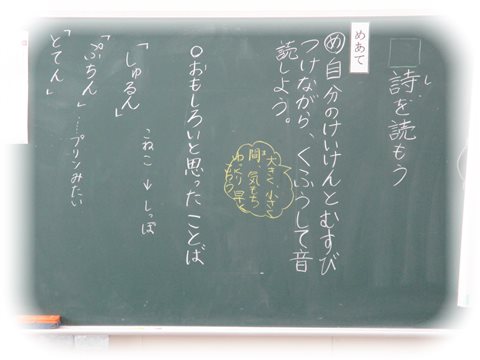 詩を読もう
し
めあて
め 自分のけいけんとむすび
つけながら、くふうして音
読しよう。
大きく、小さく
間、気もち
ま
ゆっくり、早く
○おもしろいと思ったことば
「しゅるん」
こねこ→しっぽ
「ぷちん」…プリンみたい
「とてん」